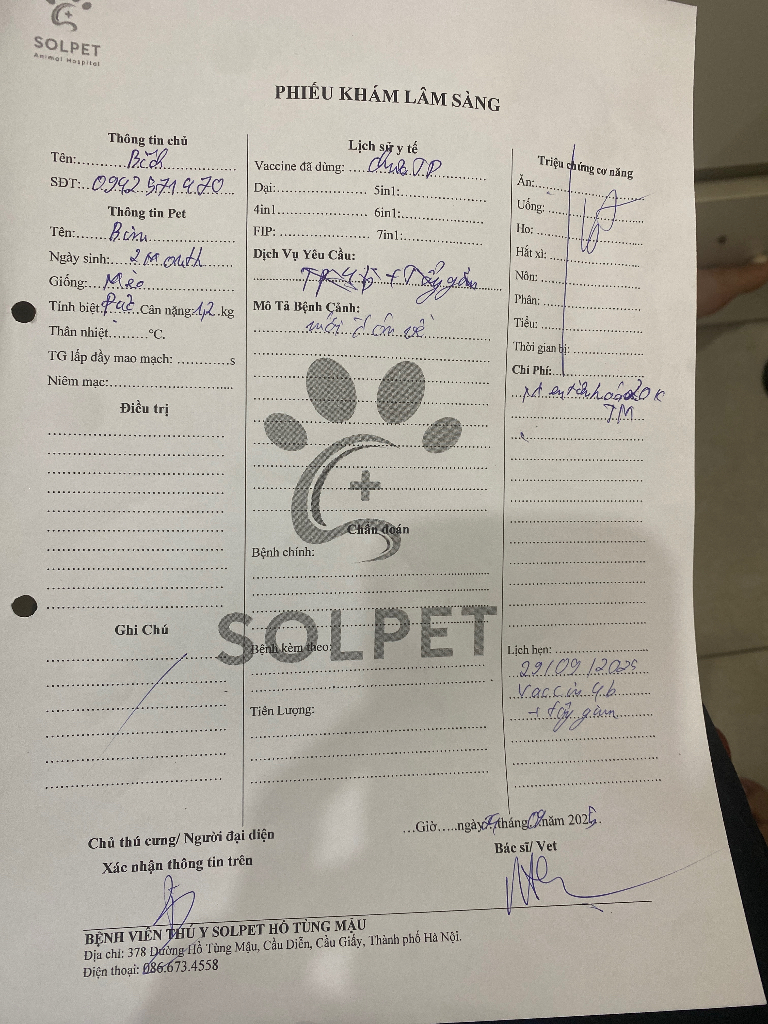 SOLPET
Animal Hospital
PHIẾU KHÁM LÂM SÀNG
Thông tin chủ
Tên:.....Bích
SĐT:..0942 571 970
Thông tin Pet
Tên:.....Bim
Ngày sinh:..2 Month
Giống:....Mèo
Tính biệt:Đực.Cân nặng:1,2.kg
Thân nhiệt.........°C.
TG lấp đầy mao mạch: ...........s
Niêm mạc:
Điều trị
Ghi Chú
Lịch sử y tế
Vaccine đã dùng: ....chưa TP
Dại:.................... 5in1:
4in1.................... 6in1:
FIP: .................... 7in1:
Dịch Vụ Yêu Cầu:
+ Tẩy giun
Mô Tả Bệnh Cảnh:
mới đón về
Chẩn đoán
Bệnh chính:
SOLPET
Bệnh kèm theo:
Tiên Lượng:
Triệu chứng cơ năng
Ăn:
Uống:
Ho:
Hắt xì:
Nôn:
Phân:
Tiểu:
Thời gian bị:
Chi Phí:
TM
Lịch hẹn:
29/09/2025
Vaccin 4b
+ tẩy giun
Chủ thú cưng/ Người đại diện
Xác nhận thông tin trên
...Giờ.....ngày tháng 09 năm 2025.
Bác sĩ/ Vet
BỆNH VIÊN THÚ Y SOLPET HỒ TÙNG MẬU
Địa chỉ: 378 Đường Hồ Tùng Mậu, Cầu Diễn, Cầu Giấy, Thành phố Hà Nội.
Điện thoại: 086.673.4558